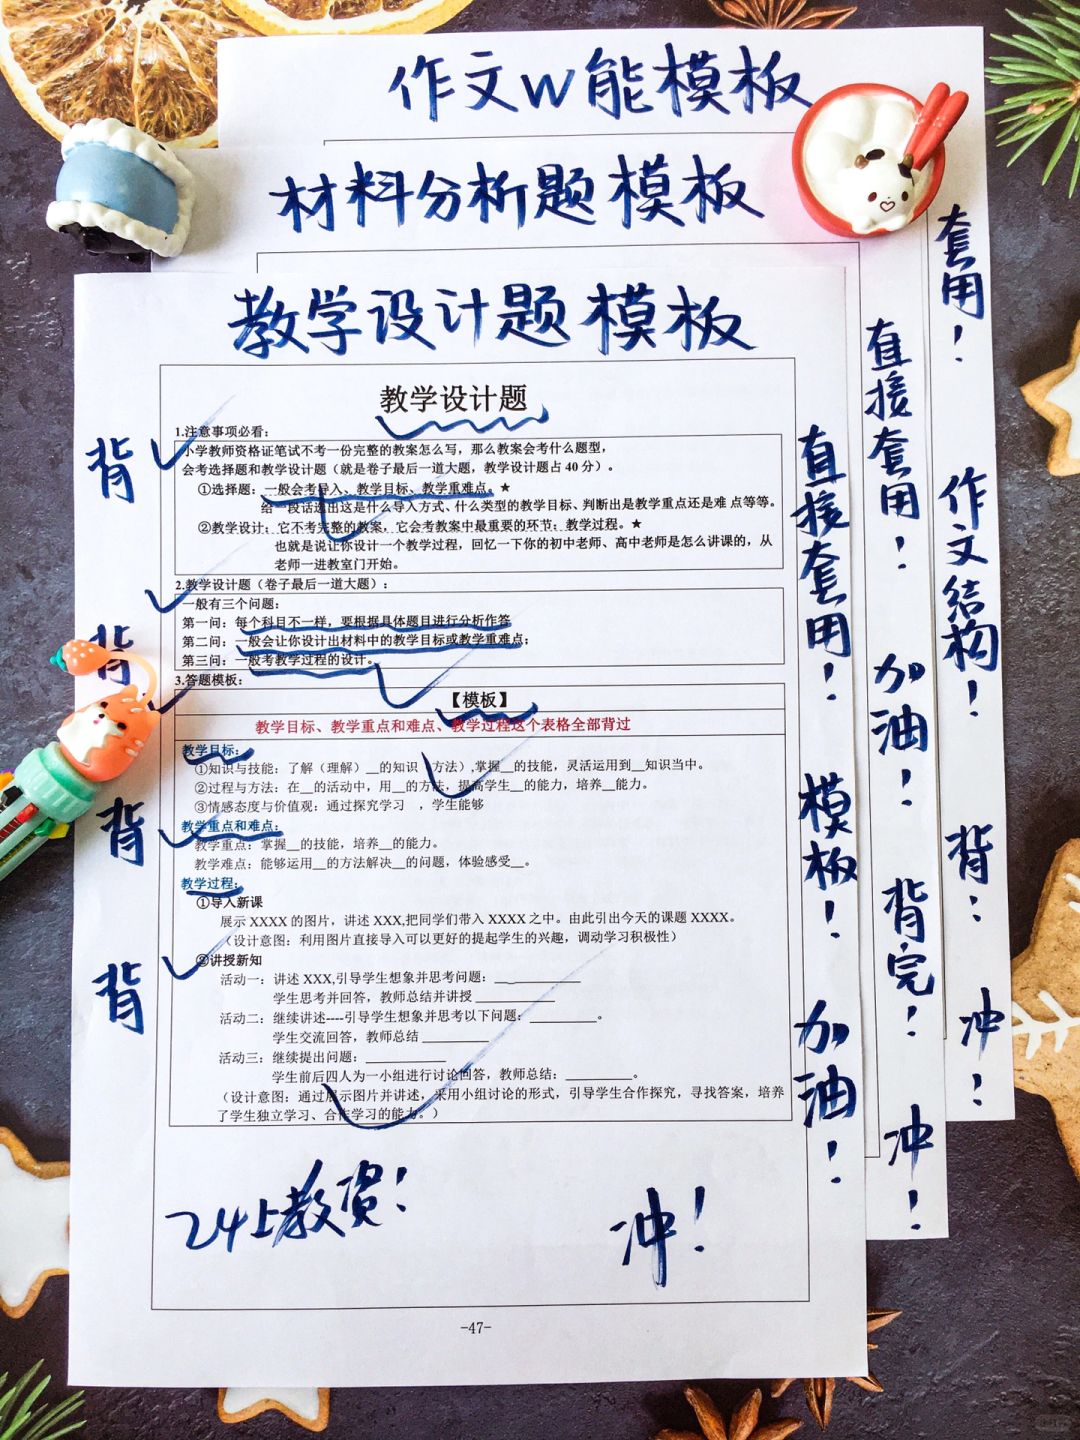 作文w能模板
材料分析题模板
教学设计题模板
教学设计题
1.注意事项必看：
小学教师资格证笔试不考一份完整的教案怎么写，那么教案会考什么题型，
会考选择题和教学设计题（就是卷子最后一道大题，教学设计题占 40 分）。
①选择题：一般会考导入、教学目标、教学重难点。★
给一段话选出这是什么导入方式、什么类型的教学目标、判断出是教学重点还是难 点等等。
②教学设计：它不考完整的教案，它会考教案中最重要的环节：教学过程。★
也就是说让你设计一个教学过程，回忆一下你的初中老师、高中老师是怎么讲课的，从
老师一进教室门开始。
2.教学设计题（卷子最后一道大题）：
一般有三个问题：
第一问：每个科目不一样，要根据具体题目进行分析作答
第二问：一般会让你设计出材料中的教学目标或教学重难点；
第三问：一般考教学过程的设计。
3.答题模板：
【模板】
教学目标、教学重点和难点、教学过程这个表格全部背过
教学目标：
①知识与技能：了解（理解）__的知识（方法）,掌握__的技能，灵活运用到__知识当中。
②过程与方法：在__的活动中，用__的方法，提高学生__的能力，培养__能力。
③情感态度与价值观：通过探究学习 ，学生能够
教学重点和难点：
教学重点：掌握__的技能，培养__的能力。
教学难点：能够运用__的方法解决__的问题，体验感受__。
教学过程：
①导入新课
展示 XXXX 的图片，讲述 XXX,把同学们带入 XXXX 之中。由此引出今天的课题 XXXX。
（设计意图：利用图片直接导入可以更好的提起学生的兴趣，调动学习积极性）
②讲授新知
活动一：讲述 XXX,引导学生想象并思考问题：____________
学生思考并回答，教师总结并讲授____________
活动二：继续讲述----引导学生想象并思考以下问题：__________。
学生交流回答，教师总结__________
活动三：继续提出问题：____________
学生前后四人为一小组进行讨论回答，教师总结：__________。
（设计意图：通过展示图片并讲述，采用小组讨论的形式，引导学生合作探究，寻找答案，培养
了学生独立学习、合作学习的能力。）
背
背
背
背
24上教资！
冲！
-47-
直接套用！模板！加油！
直接套用！加油！背完！冲！
套用！作文结构！背！冲！